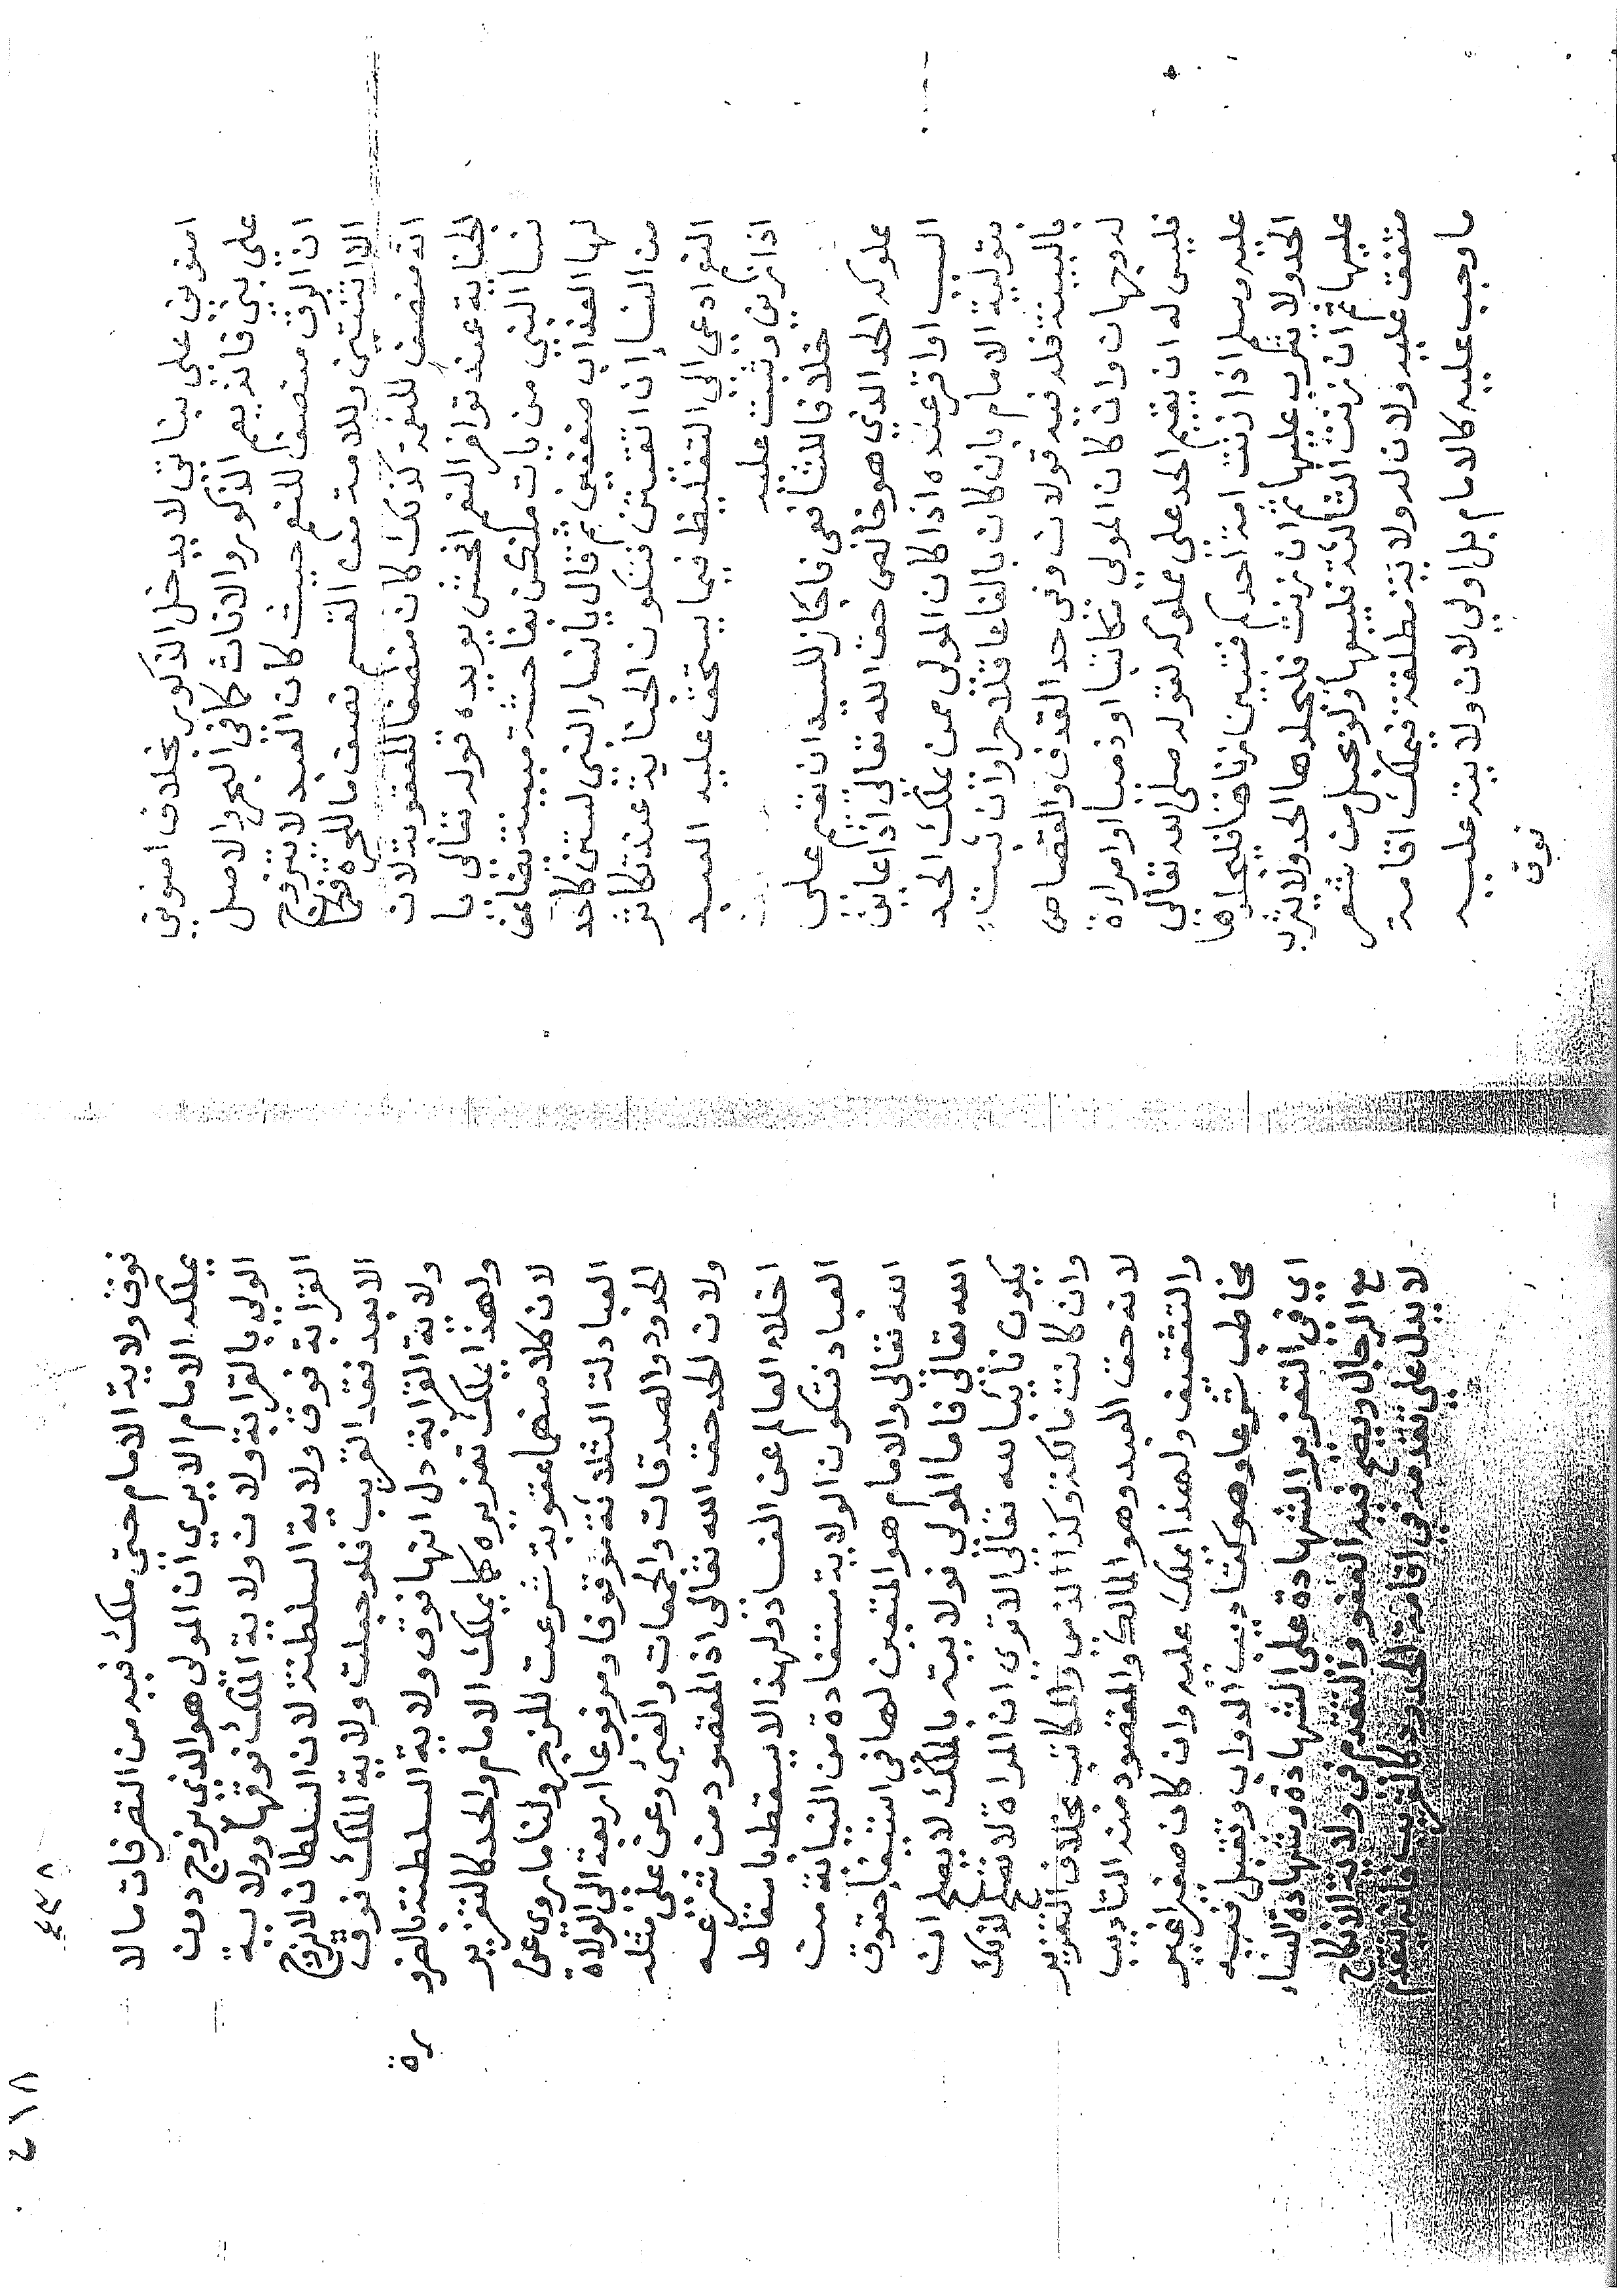 امنوني على بناتي لا يدخل الذكور بخلاف امنوني
على بني فانه يعم الذكور والاناث كافى البحر والاصل
ان الرق منصف للنعم حيث كان العبد لا يتزوج
الا ثنتين وللامة من القسم نصف ما للحرة فكما
انه منصف للنعمة كذلك كان منصفا للعقوبة لان
الجناية عند توافر النعم افحش يويده قوله تعالى يا
نسا النبي من يات منكن بفاحشة مبينة يضاعف
لها العذاب ضعفين ثم قال يا نساء النبي لستن كاحد
من النسا ان اتقيتن فتكون الجناية عند تكاثر
النوادعى الى التغليظ فيما يستحق عليه العبد
اذا زنى وثبت عليه
خلافا للشافعى فاجاز للسيد ان يقيم على
مملوكه الحد الذي هو خالص حق الله تعالى اذا عاين
السبب او اقر عنده اذا كان المولى ممن يملك الحد
بتولية الامام بان كان بالغا عاقلا حرا وان ثبت
بالبينة فله فيه قولان وفي حد القذف والقصاص
له وجهان وان كان المولى مكاتبا او ذميا او امراة
فليس له ان يقيم الحد على مملوكه لقوله صلى الله تعالى
عليه وسلم اذا زنت امة احدكم فتبين زناها فليجلدها
الحد ولا يثرب عليها ثم ان زنت فليجلدها الحد ولا يثرب
عليها ثم ان زنت الثالثة فليبعها ولو بحبل من شعر
متفق عليه ولان له ولاية مطلقة فيملك اقامة
ما وجب عليه كالامام بل اولى لان ولايته عليه
فوق
٢١٨
فوق ولاية الامام حتى ملك فيه من التصرفات ما لا
يملكه الامام الا يرى ان المولى هو الذي يزوج دون
الولي بالقرابة ولان ولاية الملك فوقها وولاية
القرابة فوق ولاية السلطنة لان السلطان لا يزوج
الا بعد فقد القريب فلو جعلت ولاية الملك فوق
ولاية القرابة دل انها فوق ولاية السلطنة بالضرو
رة
ولهذا يملك تعزيره كما يملك الامام والحد كالتعزير
لان كلا منهما عقوبة شرعت للزجر ولنا ما روى عن
العبادلة الثلاثة موقوفا ومرفوعا اربعة الى الولاة
الحدود والصدقات والجمعات والفئ وعن على مثله
ولان الحد حق الله تعالى اذ المقصود من شرعه
اخلاء العالم عن الفساد ولهذا لا يسقط باسقاط
العباد فتكون الولاية مستفادة من النيابة من
الله تعالى والامام هو المتعين لها فى استيفا حقوق
الله تعالى فاما المولى فولايته بالملك لا يصلح ان
يكون نائبا لله تعالى الا ترى ان المراة لا تصلح لذلك
وان كانت مالكة وكذا الذمى والمكاتب بخلاف التعزير
لانه حق العبد وهو المالك والمقصود منه التاديب
والتثقيف ولهذا يملك عليه وان كان صغيرا غير
مخاطب شرعا وهو كتاديب الدواب وتقبل فيه
اي في التعزير الشهادة على الشهادة وشهادة النساء
مع الرجال ويصح فيه العفو والتقدم في ولاية الانكاح
لا يدل على تقدمه فى اقامة الحدود كالقريب فانه يتقدم